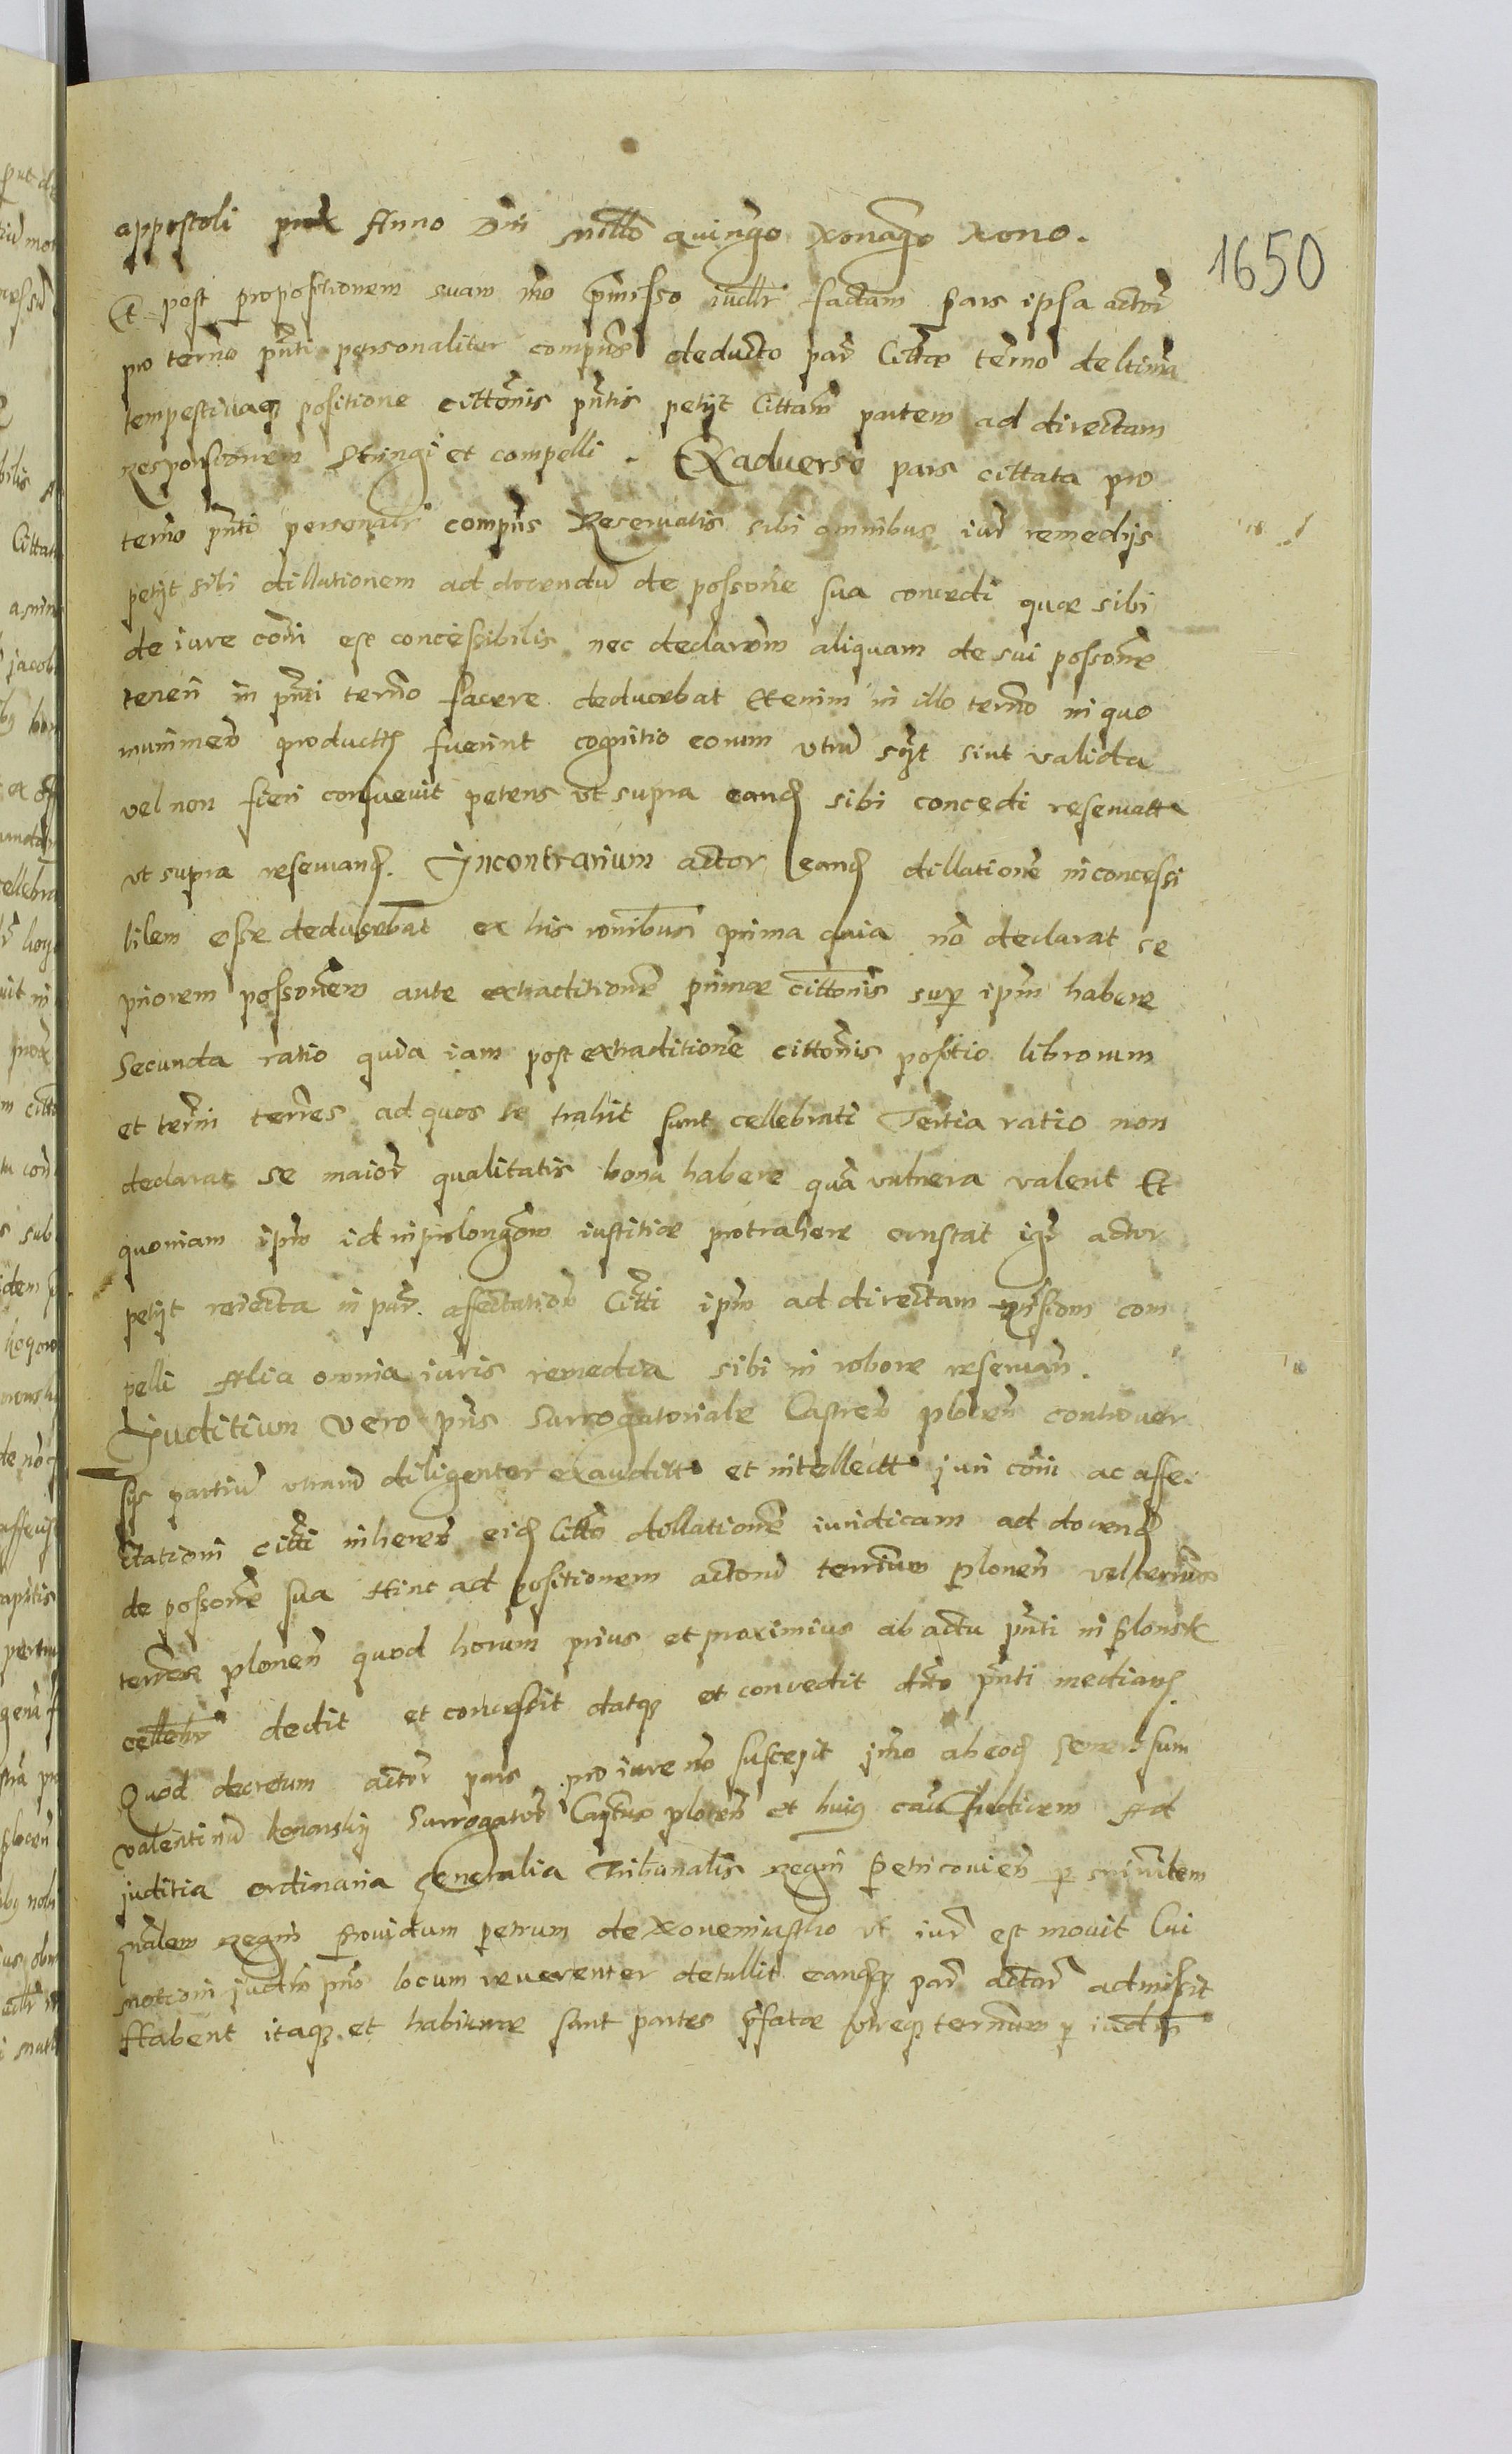 appostoli prox Anno Dni Millo quingo Nonago Nono.
1650
Et post propositionem suam mo pmisso iudlr factam Pars ipsa actor
pro termo pnti personaliter compns deducto par Cittae termo deltima
tempestivaq positione cittonis pntis petyt Cittam partem ad directam
Responsionem Stringi et compelli. Exadverso pars cittata pro
termo pnti personalr compns Reservatis sibi omnibus iur remedijs
petyt sibi dillationem ad docendu de possone sua concedi quae sibi
de iure coni est concessibilis nec declarom aliquam de sui possone
tenen in pnti termo facere deducebat Etenim in illo termo in quo
munimen producta fuerint cognitio eorum utru sint valida
vel non fieri consuevit petens ut supra eand sibi concedi reservatt
ut supra reservand. Incontrarium actor eand dillatione inconcessi
bilem esse deducebat ex his ronibus prima quia no declarat se
priorem possonem ante extraditione primae cittonis sup ipm habere
Secunda ratio quia iam post extraditione cittonis positio librorum
et termi terres ad quos se trahit sunt cellebrati Tertia ratio non
declarat se maior qualitatis bona habere qua vulnera valent Et
quoniam ipm id in prolongom iustitiae protrahere constat igr actor
petyt reiecta in par affectatior Citti ipm ad directam rnsiom com
pelli Alia omnia iuris remedia sibi in robore reservan.
Juditium vero pns Surrogatoriale Castren plocen controver
sys partiu utraru diligenter exauditt et intellectt juri coni ac affe
ctationi citti inheren eid Citto dillatione iuridicam ad docend
de possone sua Hinc ad positionem actoru terrium plonen vel terminos
terres plonen quod horum prius et proximius ab actu pnti in Plonsk
cellebr dedit et concessit datq et concedit dto pnti median
Quod decretum actor pars pro iure no suscepit imo ab eod Generosum
valentinu konarsky Surrogator Captus plocen et huig cau Judicem Ad
juditia ordinaria Generalia Tribunalis Regni Petricovien p ministem
gnalem Regni Providum petrum de Novemiastho ut iur est movit Cui
motioni judm pns locum reverenter detullit eandq par actor admisit
Habent itaq et habiturae sunt partes pfatae utreq terminum p iudm